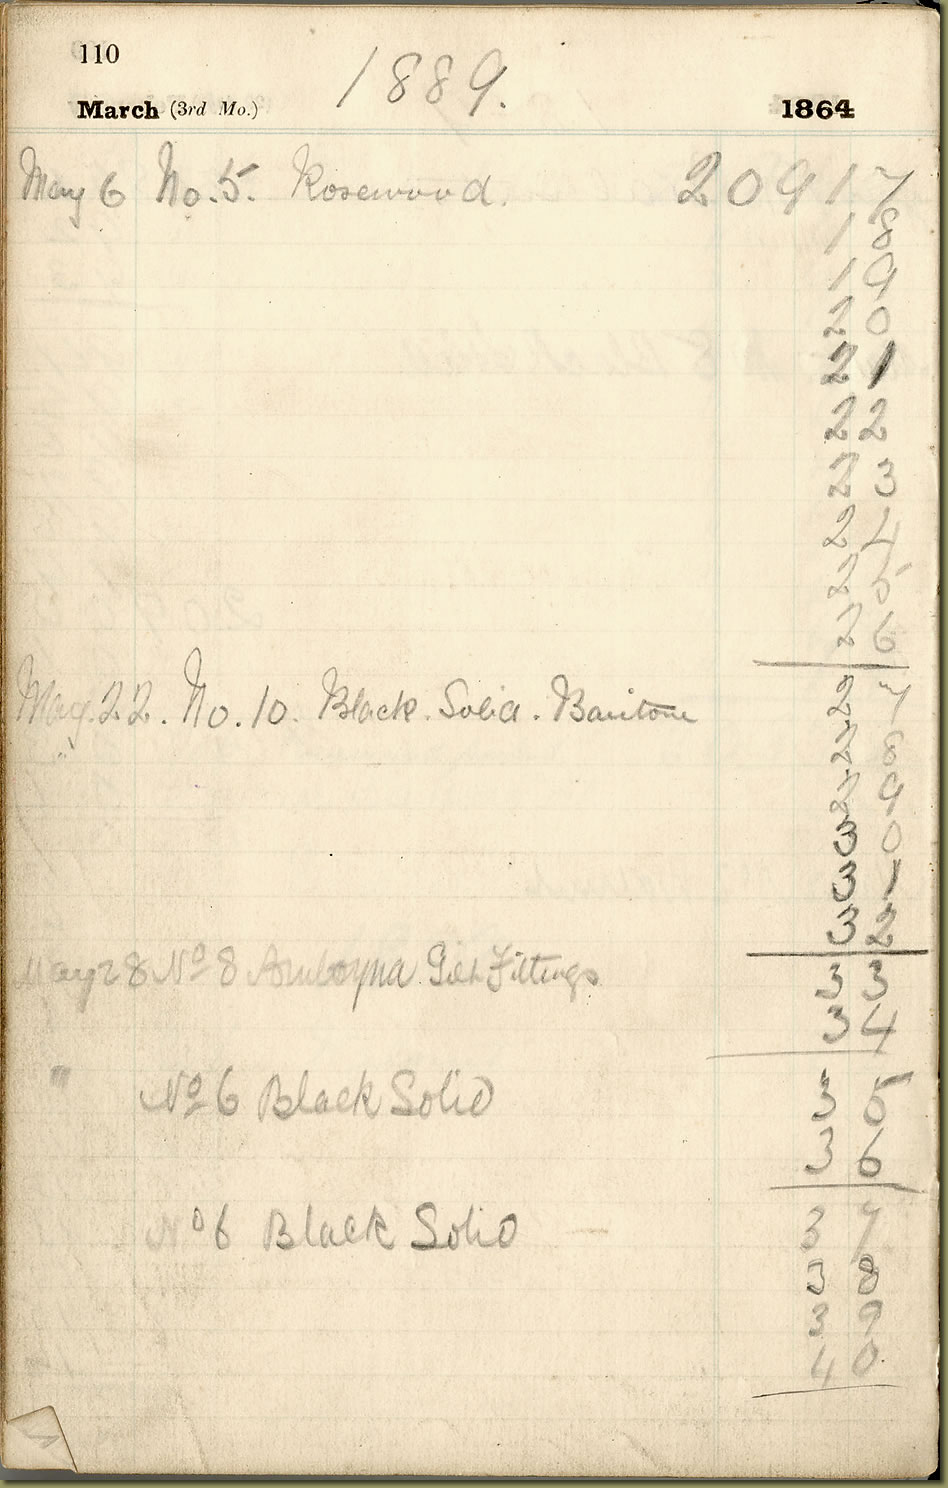 110
1889.
March (3rd Mo.) 1864
May 6 No. 5. Rosewood. 20917
18
19
20
21
22
23
24
25
26
May. 22. No. 10. Black. Solid. Baritone 27
28
29
30
31
32
May 28 No 8 Amboyna Gilt Fittings 33
34
" No 6 Black Solid 35
36
No 6 Black Solid 37
38
39
40